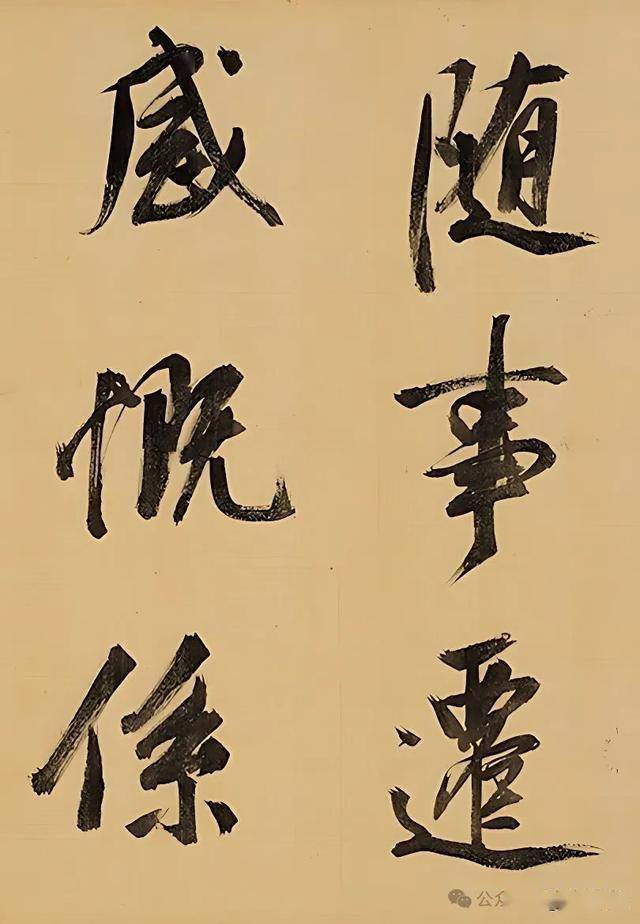 随事遷
感慨係
公众